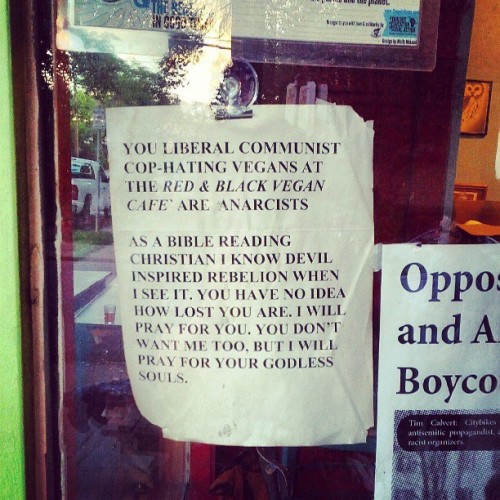 THE RE
IN GOOD T
and the planet.
YOU LIBERAL COMMUNIST
COP-HATING VEGANS AT
THE RED & BLACK VEGAN
CAFE` ARE ANARCISTS
AS A BIBLE READING
CHRISTIAN I KNOW DEVIL
INSPIRED REBELION WHEN
I SEE IT. YOU HAVE NO IDEA
HOW LOST YOU ARE. I WILL
PRAY FOR YOU. YOU DON'T
WANT ME TOO, BUT I WILL
PRAY FOR YOUR GODLESS
SOULS.
Oppos
and A
Boyco
Tim Calvert: Citybikes
antisemitic propagandist, a
racist organizers.